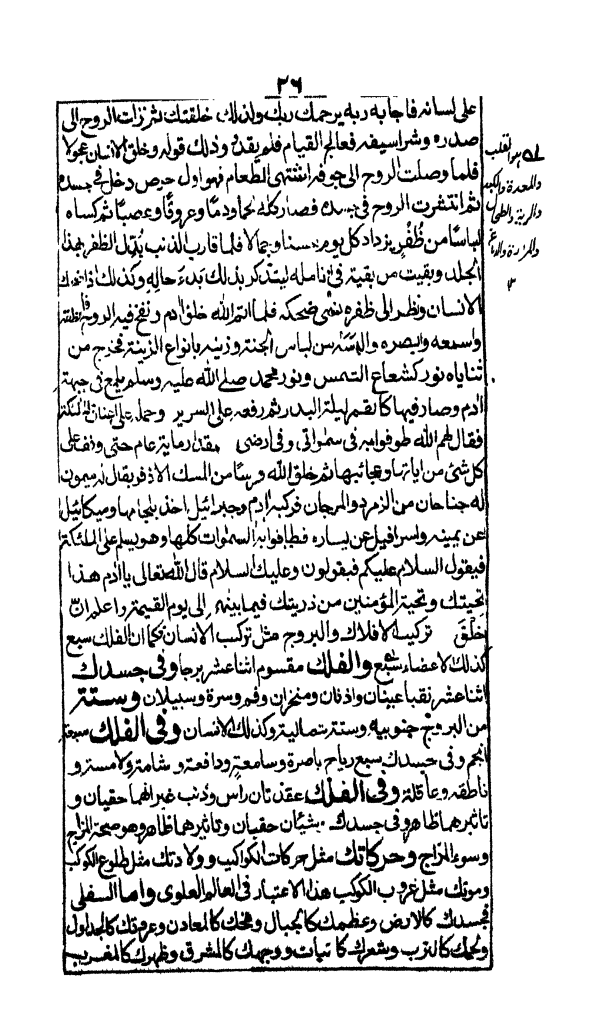 ٢٦
على لسانه فاجابه ربه يرحمك ربك ولذلك خلقتك ثم نزلت الروح الى
صدره وشراسيفه فعالج القيام فلم يقدر وذلك قوله وخلق الانسان عجولا
فلما وصلت الروح الى جوفه اشتهى الطعام فهو اول حرص دخل في جسده
ثم انتشرت الروح في جسده فصار كله لحما ودمًا وعروقًا وعصبًا ثم كساه
لباسًا من ظفر يزداد كل يوم حسنا وجمالا فلما قارب الذنب بُدّل الظفر بهذا
الجلد وبقيت من بقيته في انامله ليتذكر بذلك بدء حاله وكذلك اذا ضحك
الانسان ونظر الى ظفره نسى ضحكه فلما اتم الله خلق ادم ونفخ فيه الروح
واسمعه وابصره والبسه من لباس الجنة وزينه بانواع الزينة فخرج من
ثناياه نور كشعاع الشمس ونور محمد صلى الله عليه وسلم يلمع في جبهة
ادم وصار فيها كالقمر ليلة البدر ثم رفعه على السرير وحمله على اعناق الملئكة
فقال لهم الله طوفوا به في سمواتى وفى ارضى مقدار ماية عام حتى وقف على
كل شئ من اياتها وعجائبها ثم خلق الله فرسًا من المسك الاذفر يقال له ميمون
له جناحان من الزمرد والمرجان فركبه ادم وجبرائيل اخذ بلجامها وميكائيل
عن يمينه واسرافيل عن يساره فطافوا به السموات كلها وهو يسلم على الملئكة
فيقول السلام عليكم فيقولون وعليك السلام قال الله تعالى يا ادم هذا
تحيتك وتحية المؤمنين من ذريتك فيما بينهم الى يوم القيمة واعلم ان
خلق تركيب الافلاك والبروج مثل تركيب الانسان فكما ان الفلك سبع
كذلك الاعضاء سبع والفلك مقسوم اثنا عشر برجا وفى جسدك
اثنا عشر نقبا عينان واذنان ومنخران وفم وسرة وسبيلان وستة
من البروج جنوبيه وستة شمالية وكذلك الانسان وفى الفلك سبعة
انجم وفى جسدك سبع رياح باصرة وسامعة ودافعة وشامة ولامسة و
ناطقه وعاقلة وفى الفلك عقدتان راس وذنب غير انهما خفيان و
تاثيرهما ظاهر وفى جسدك شيئان خفيان وتاثيرهما ظاهر وهو صحة المزاج
وسوء المزاج وحركاتك مثل حركات الكواكب وولادتك مثل طلوع الكوكب
وموتك مثل غروب الكوكب هذا الاعتبار فى العالم العلوى واما السفلى
فجسدك كالارض وعظمك كالجبال ومخك كالمعادن وعروقك كالجداول
ولحمك كالترب وشعرك كالنبات ووجهك كالمشرق وظهرك كالمغرب
هو القلب
والمعدة والكبد
والرية والطحال
والمرارة والدماغ